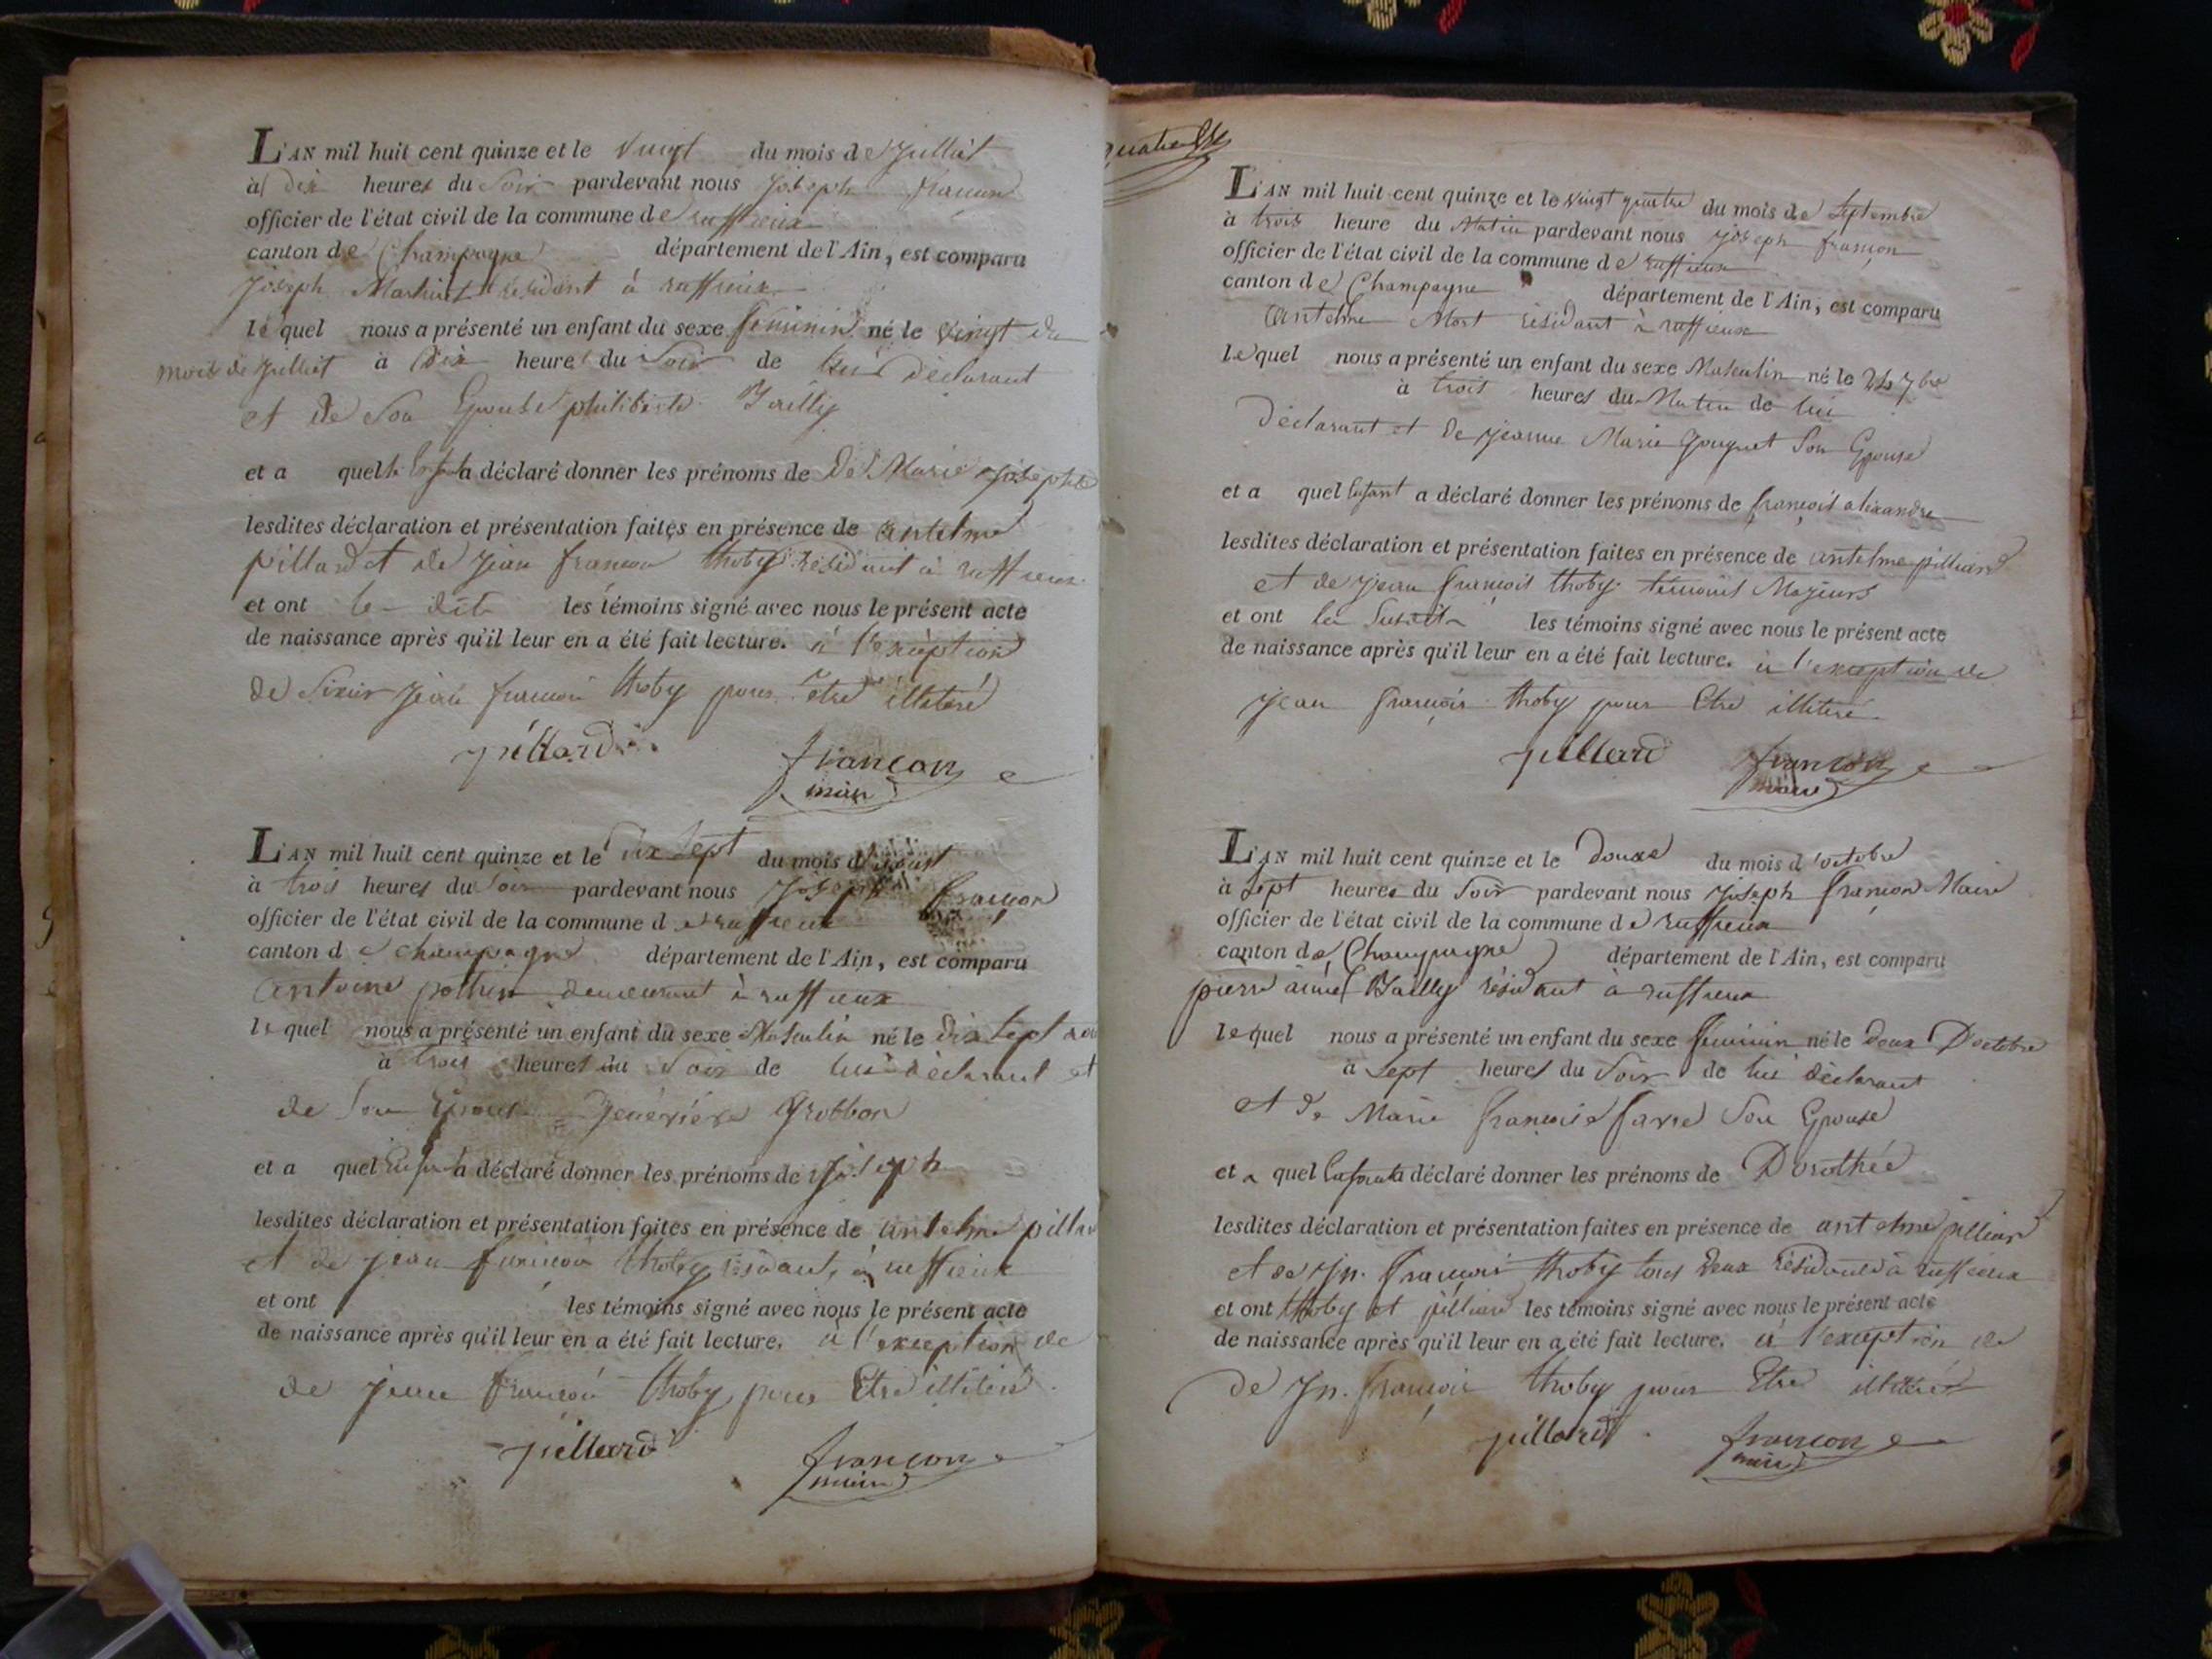 L'AN mil huit cent quinze et le vingt du mois de Julliet
à dix heures du Soir pardevant nous Joseph françon
officier de l'état civil de la commune de ruffieux
canton de Champagne département de l'Ain, est comparu
Joseph Martinet résidant à ruffieux
le quel nous a présenté un enfant du sexe feminin né le vingt du
mois de Julliet à dix heures du Soir de lui déclarant
et de Son Epouse philiberte Bailly
et a quel Enfant a déclaré donner les prénoms de De Marie Josephte
lesdites déclaration et présentation faites en présence de antelme
pillard et de Jean françou thoby résidant à ruffieux
et ont les dits les témoins signé avec nous le présent acte
de naissance après qu'il leur en a été fait lecture. à l'exéption
de Jean françou thoby pour être illitéré
pillard
françon
maire
L'AN mil huit cent quinze et le dix Sept du mois d'aoust
à trois heures du Soir pardevant nous Joseph françon
officier de l'état civil de la commune de ruffieux
canton de Champagne département de l'Ain, est comparu
antoine pothin demeurant à ruffieux
le quel nous a présenté un enfant du sexe Masculin né le dix Sept
à trois heures du Soir de lui déclarant et
de Son Epouse Genéviéve Grobbon
et a quel Enfant a déclaré donner les prénoms de Joseph
lesdites déclaration et présentation faites en présence de antelme pillar
et de jean françou thoby résidant à ruffieux
et ont les témoins signé avec nous le présent acte
de naissance après qu'il leur en a été fait lecture. à l'exception de
de jean françou thoby pour Etre illitéré
pillard
françon
maire
L'AN mil huit cent quinze et le vingt quatre du mois de Septembre
à trois heure du Matin pardevant nous Joseph françon
officier de l'état civil de la commune de ruffieux
canton de Champagne département de l'Ain, est comparu
antelme Mort résidant à ruffieux
le quel nous a présenté un enfant du sexe Masculin né le 24 7bre
à trois heures du Matin de lui
déclarant et de jeanne Marie Gouguet Son Epouse
et a quel Enfant a déclaré donner les prénoms de françois alixandre
lesdites déclaration et présentation faites en présence de antelme pilliard
et de jean françois thoby témoins Majeurs
et ont les Susdits les témoins signé avec nous le présent acte
de naissance après qu'il leur en a été fait lecture. à l'exception de
jean françois thoby pour Etre illitéré
pillard
françon
maire
L'AN mil huit cent quinze et le Douxe du mois d'octobre
à Sept heures du Soir pardevant nous Joseph françon Maire
officier de l'état civil de la commune de ruffieux
canton de Champagne département de l'Ain, est comparu
pierre aimé Bailly résidant à ruffieux
le quel nous a présenté un enfant du sexe feminin né le Doux D'octobre
à Sept heures du Soir de lui déclarant
et de Marie françoise favre Son Epouse
et a quel Enfant a déclaré donner les prénoms de Dorothée
lesdites déclaration et présentation faites en présence de antelme pilliard
et de Jn. françois thoby tous deux résidants à ruffieux
et ont thoby et pilliard les témoins signé avec nous le présent acte
de naissance après qu'il leur en a été fait lecture. à l'exception de
de Jn. françois thoby pour Etre illitéré
pillard
françon
maire